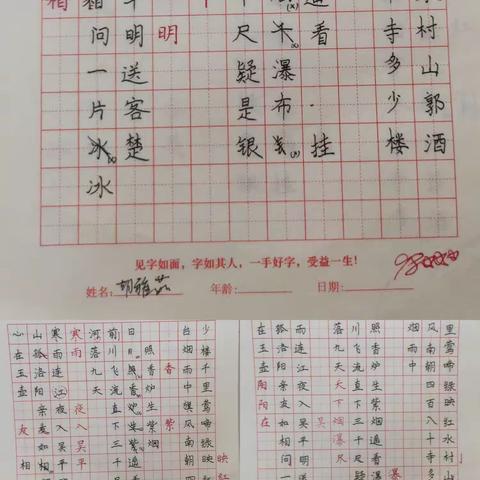 水村山郭酒
寺多少楼
遥看挂
瀑布
尺疑是银
明
辛明送客楚
相问一片冰冰
相
见字如面，字如其人，一手好字，受益一生！
98
姓名: 胡雅茹 年龄: 日期:
少楼千里莺啼绿映红
映红
台烟雨中风南朝四
香紫
照香炉生紫烟
前川飞流直下三千
河落九天
寒夜吴平
寒雨连江夜入吴平
山孤洛阳亲友如相
心在玉壶
友相
里莺啼绿映红水村山
风南朝四百八十寺多
烟雨中
照香炉生紫烟遥看瀑
瀑
川飞流直下三千尺疑
落九天
天烟瀑尺
吴
雨连江夜入吴平明送
孤洛阳亲友如相问一
在玉壶
阳阳在